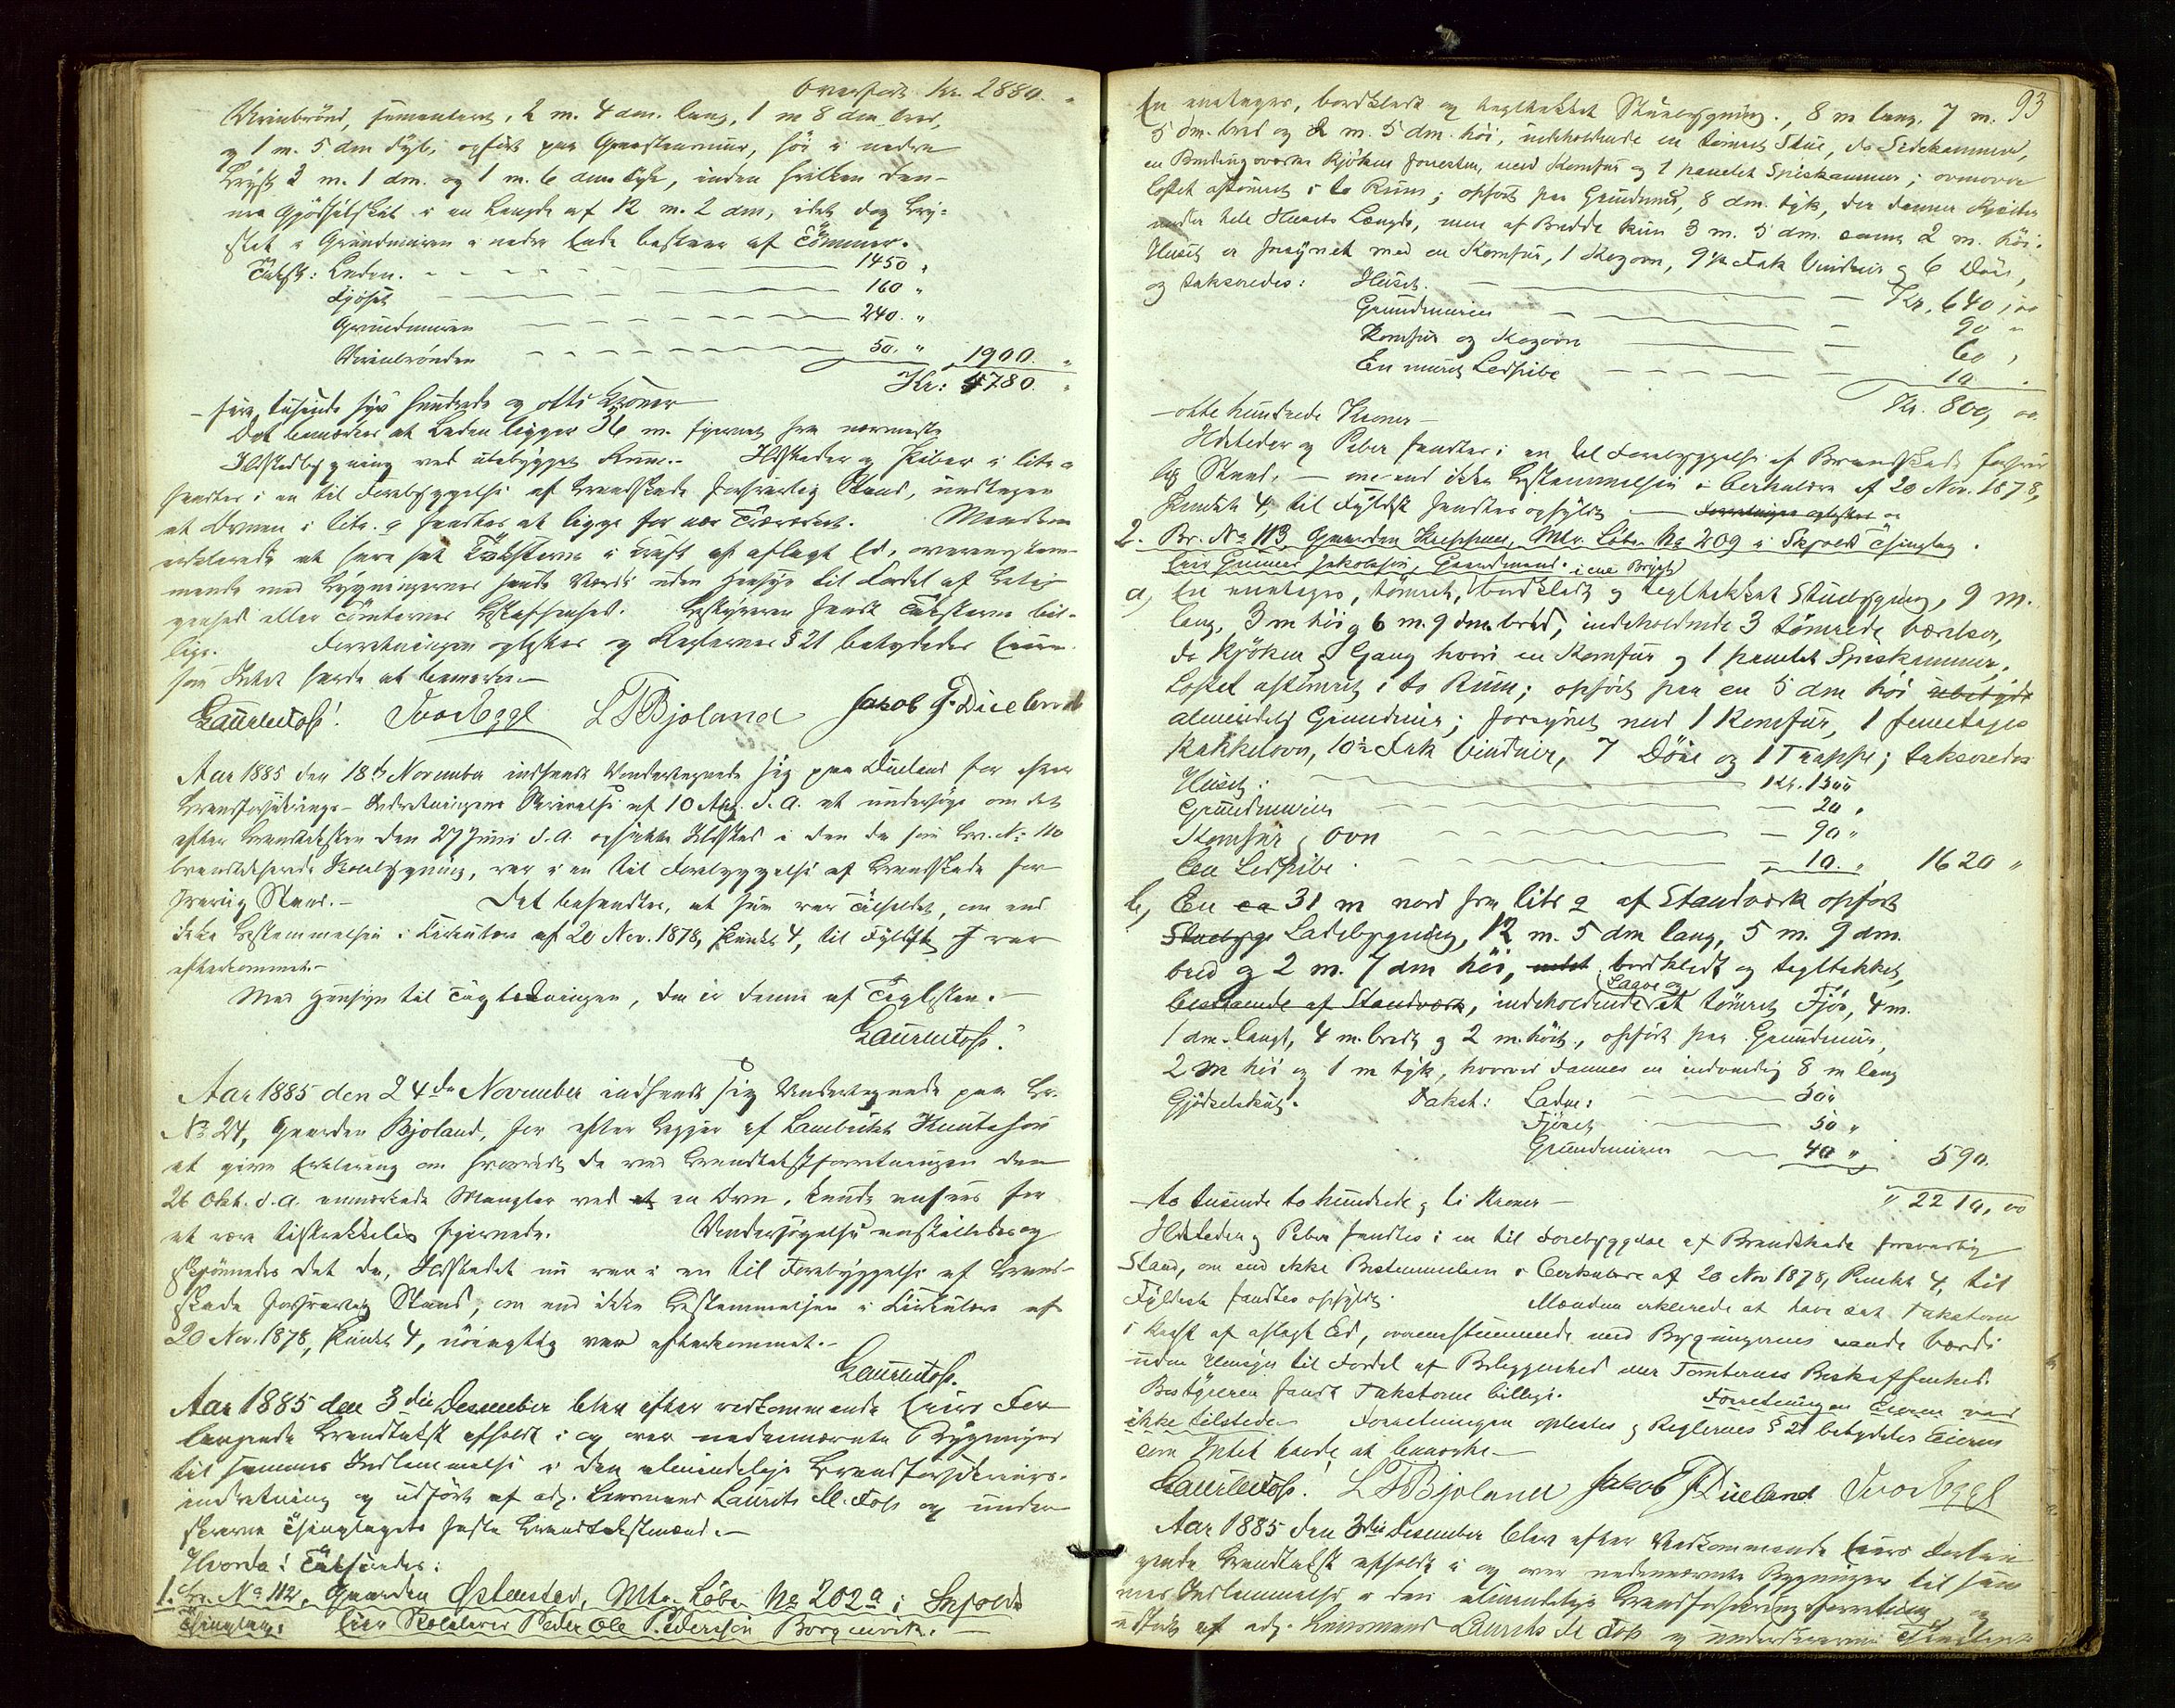 Overført Kr. 2880. "
Urinbrönd, sementeret, 2 m. 4 dm. lang, 1 m 8 dm bred,
og 1 m. 5 dm dyb, opført paa Graastensmur, höi i nedre
2 m. 1 dm. og 1 m. 6 dm tyk, inden hvilken den-
ne Gjödselskjæl i en Længde af 12 m. 2 dm, idet dog
i Grundmuren i nedre Ende bestaar af Tömmer.
Takst: Laden. 1450 "
Fjöset 160 "
Grundmuren 240. "
Urinbrönden 50. " 1900. "
Kr: 4780. "
- fire tusinde syv hundrede og otti Kroner -
Det bemærkes at Laden ligger 36 m. fjernet fra nærmeste
Ildstedbygning ved ubebygget Rum. - Ildsteder og Piber i litr a
fandtes i en til Forebyggelse af Brandskade forsvarlig Stand, undtagen
at Ovnen i litr. a fandtes at ligge for nær Træværket. Mændene
erklærede at have sat Taksterne i Kraft af aflagt Ed, overensstem-
mende med Bygningernes sande Værdi uden Hensyn til Fordel af Belig-
genhed eller Tomternes Beskaffenhed. Bestyreren fandt Taksterne bil-
lige. Forretningen oplæstes og Reglernes § 21 betydedes Eieren
som Intet havde at bemærke. -
Lauritz Foss. Ivar Egge L T Bjoland Jakob J. Dueland
Aar 1885 den 18de November indfandt Undertegnede sig paa Dueland for efter
Brandforsikrings-Indretningens Skrivelse af 10 Aug. d. A. at undersöge om det
efter Brandtaksten den 27 Juni d. A. opsatte Ildsted i den da som Br. No 110
brandtakserede Stuebygning, var i en til Forebyggelse af Brandskade for-
svarlig Stand. - Det befandtes, at saa var Tilfældet, om end
ikke Bestemmelsen i Cirkulære af 20 Nov. 1878, Punkt 4, til Fyldest var
efterkommet. -
Med Hensyn til Tagtækningen, da er denne af Teglsten. -
Lauritz Foss.
Aar 1885 den 24de November indfandt sig Undertegnede paa Br.
No 24, Gaarden Bjoland, for efter Begjær af Lambrikt Knutesön
at give Erklæring om hvorvidt de ved Brandtakstforretningen den
26 Okt. d. A. anmærkede Mangler ved en Ovn, kunde ansees for
at være tilstrækkelig fjernede. Undersögelse anstilledes og
skjönnedes det da, Ildstedet nu var i en til Forebyggelse af Brand-
skade forsvarlig Stand, om end ikke Bestemmelsen i Cirkulære af
20 Nov. 1878, Punkt 4, nöiagtig var efterkommet. -
Lauritz Foss.
Aar 1885 den 3die Desember blev efter vedkommende Eiers For-
langende Brandtakst afholdt i og over nedennævnte Bygninger
til sammes Indlemmelse i den almindelige Brandforsikrings-
indretning og udfört af adj. Lensmand Laurits M. Foss og under-
skrevne Thinglagets faste Brandtakstmænd. -
Hvorda! Taksredes:
1. Br. No 112, Gaarden Østenstad, Mtr. Löbe No 202a i Skjolds
Thinglag. Eier Skolelærer Peder Ole Pedersen Borgenvik. -
93
En enetages, bordklædt og teglhækket Stuebygning, 8 m lang, 7 m.
5 dm. bred og 2 m. 5 dm. höi, indeholdende en tömret Stue, do Sidekammer,
en Bindingsværks Kjöken forresten, med Komfur og 1 panelet Spiskammer; ovenover
Loftet aftömret i to Rum; opfört paa Grundmur, 8 dm. tyk, der danner Kjælder
under hele Husets Længde, men af Bredde kun 3 m. 5 dm. samt 2 m. höi.
Huset er forsynet med en Komfur, 1 Kogovn, 9 1/2 Fak Vinduer og 6 Döre,
og takseredes: Huset. Kr. 640,00
Grundmuren 90 "
Komfur og Kogovn 60 "
En muret Ledpibe 10 "
Kr. 800,00
- otte hundrede Kroner -
Ildsteder og Piber fandtes i en til Forebyggelse af Brandskade forsvar-
lig Stand, - om end ikke Bestemmelsen i Cerkulære af 20 Nov. 1878,
Punkt 4, til Fyldest fandtes opfyldt. - Forretningen oplæstes o
2. Br. No 113, Gaarden , Mtr. Löbe No 209 i Skjolds Thinglag.
Eier Gunnar Jakobsen, Gaardmand. i ene Brygt
a, En enetages, tömret, bordklædt og teglhækket Stuebygning, 9 m.
lang, 3 m höi og 6 m. 9 dm. bred, indeholdende 3 tömrede Værelser,
do Kjöken og Gang hvori en Komfur og 1 panelet Spiskammer,
Loftet aftömret i to Rum; opfört paa en 5 dm höi ubetyde
almindelig Grundmur; forsynet med 1 Komfur, 1 femetages
Kakkelovn, 10 1/2 Fak Vinduer, 7 Döre og 1 Trappe; takseredes
Huset: Kr. 1500
Grundmuren 20 "
Komfur og Ovn 90 "
En Ledpibe 10. " 1620 "
b, En ca 31 m nord fra litr a af Standværk opfört
Stuebyge Ladebygning, 12 m. 5 dm lang, 5 m. 9 dm.
bred og 2 m. 7 dm höi, bordklædt og teglhækket,
Laave og
bestaaende af Standværk, indeholdende et tömret Fjös, 4 m.
1 dm. langt, 4 m. bredt og 2 m. höit, opfört paa Grundmur,
2 m höi og 1 m tyk, hvorved dannes en indvendig 8 m lang
Gjödselskjul. Takst: Laden: 500
Fjöset 50 "
Grundmuren 40 " 590.
- to tusinde to hundrede og ti Kroner - " 2210,00
Ildsteder og Piber fandtes i en til Forebyggelse af Brandskade forsvarlig
Stand, om end ikke Bestemmelsen i Cerkulære af 20 Nov 1878, Punkt 4, til
Fyldest fandtes opfyldt. Mændene erklærede at have sat Taksterne
i Kraft af aflagt Ed, overensstemmende med Bygningernes sande Værdi
uden Hensyn til Fordel af Beliggenhed eller Tomternes Beskaffenhed.
Bestyreren fandt Taksterne billige. Forretningen Eieren var
ikke tilstede. Forretningen oplestes og Reglernes § 21 betydedes Eieren
som Intet havde at bemærke. -
Lauritz Foss. L T Bjoland Jakob J Dueland Ivar Egge
Aar 1885 den 3die Desember blev efter Vedkommende Eiers Forlan-
gende Brandtakst afholdt i og over nedennævnte Bygninger til sam-
mes Indlemmelse i den almindelige Brandforsikringsindretning og
udfört af adj. Lensmand Laurits M Foss og underskrevne